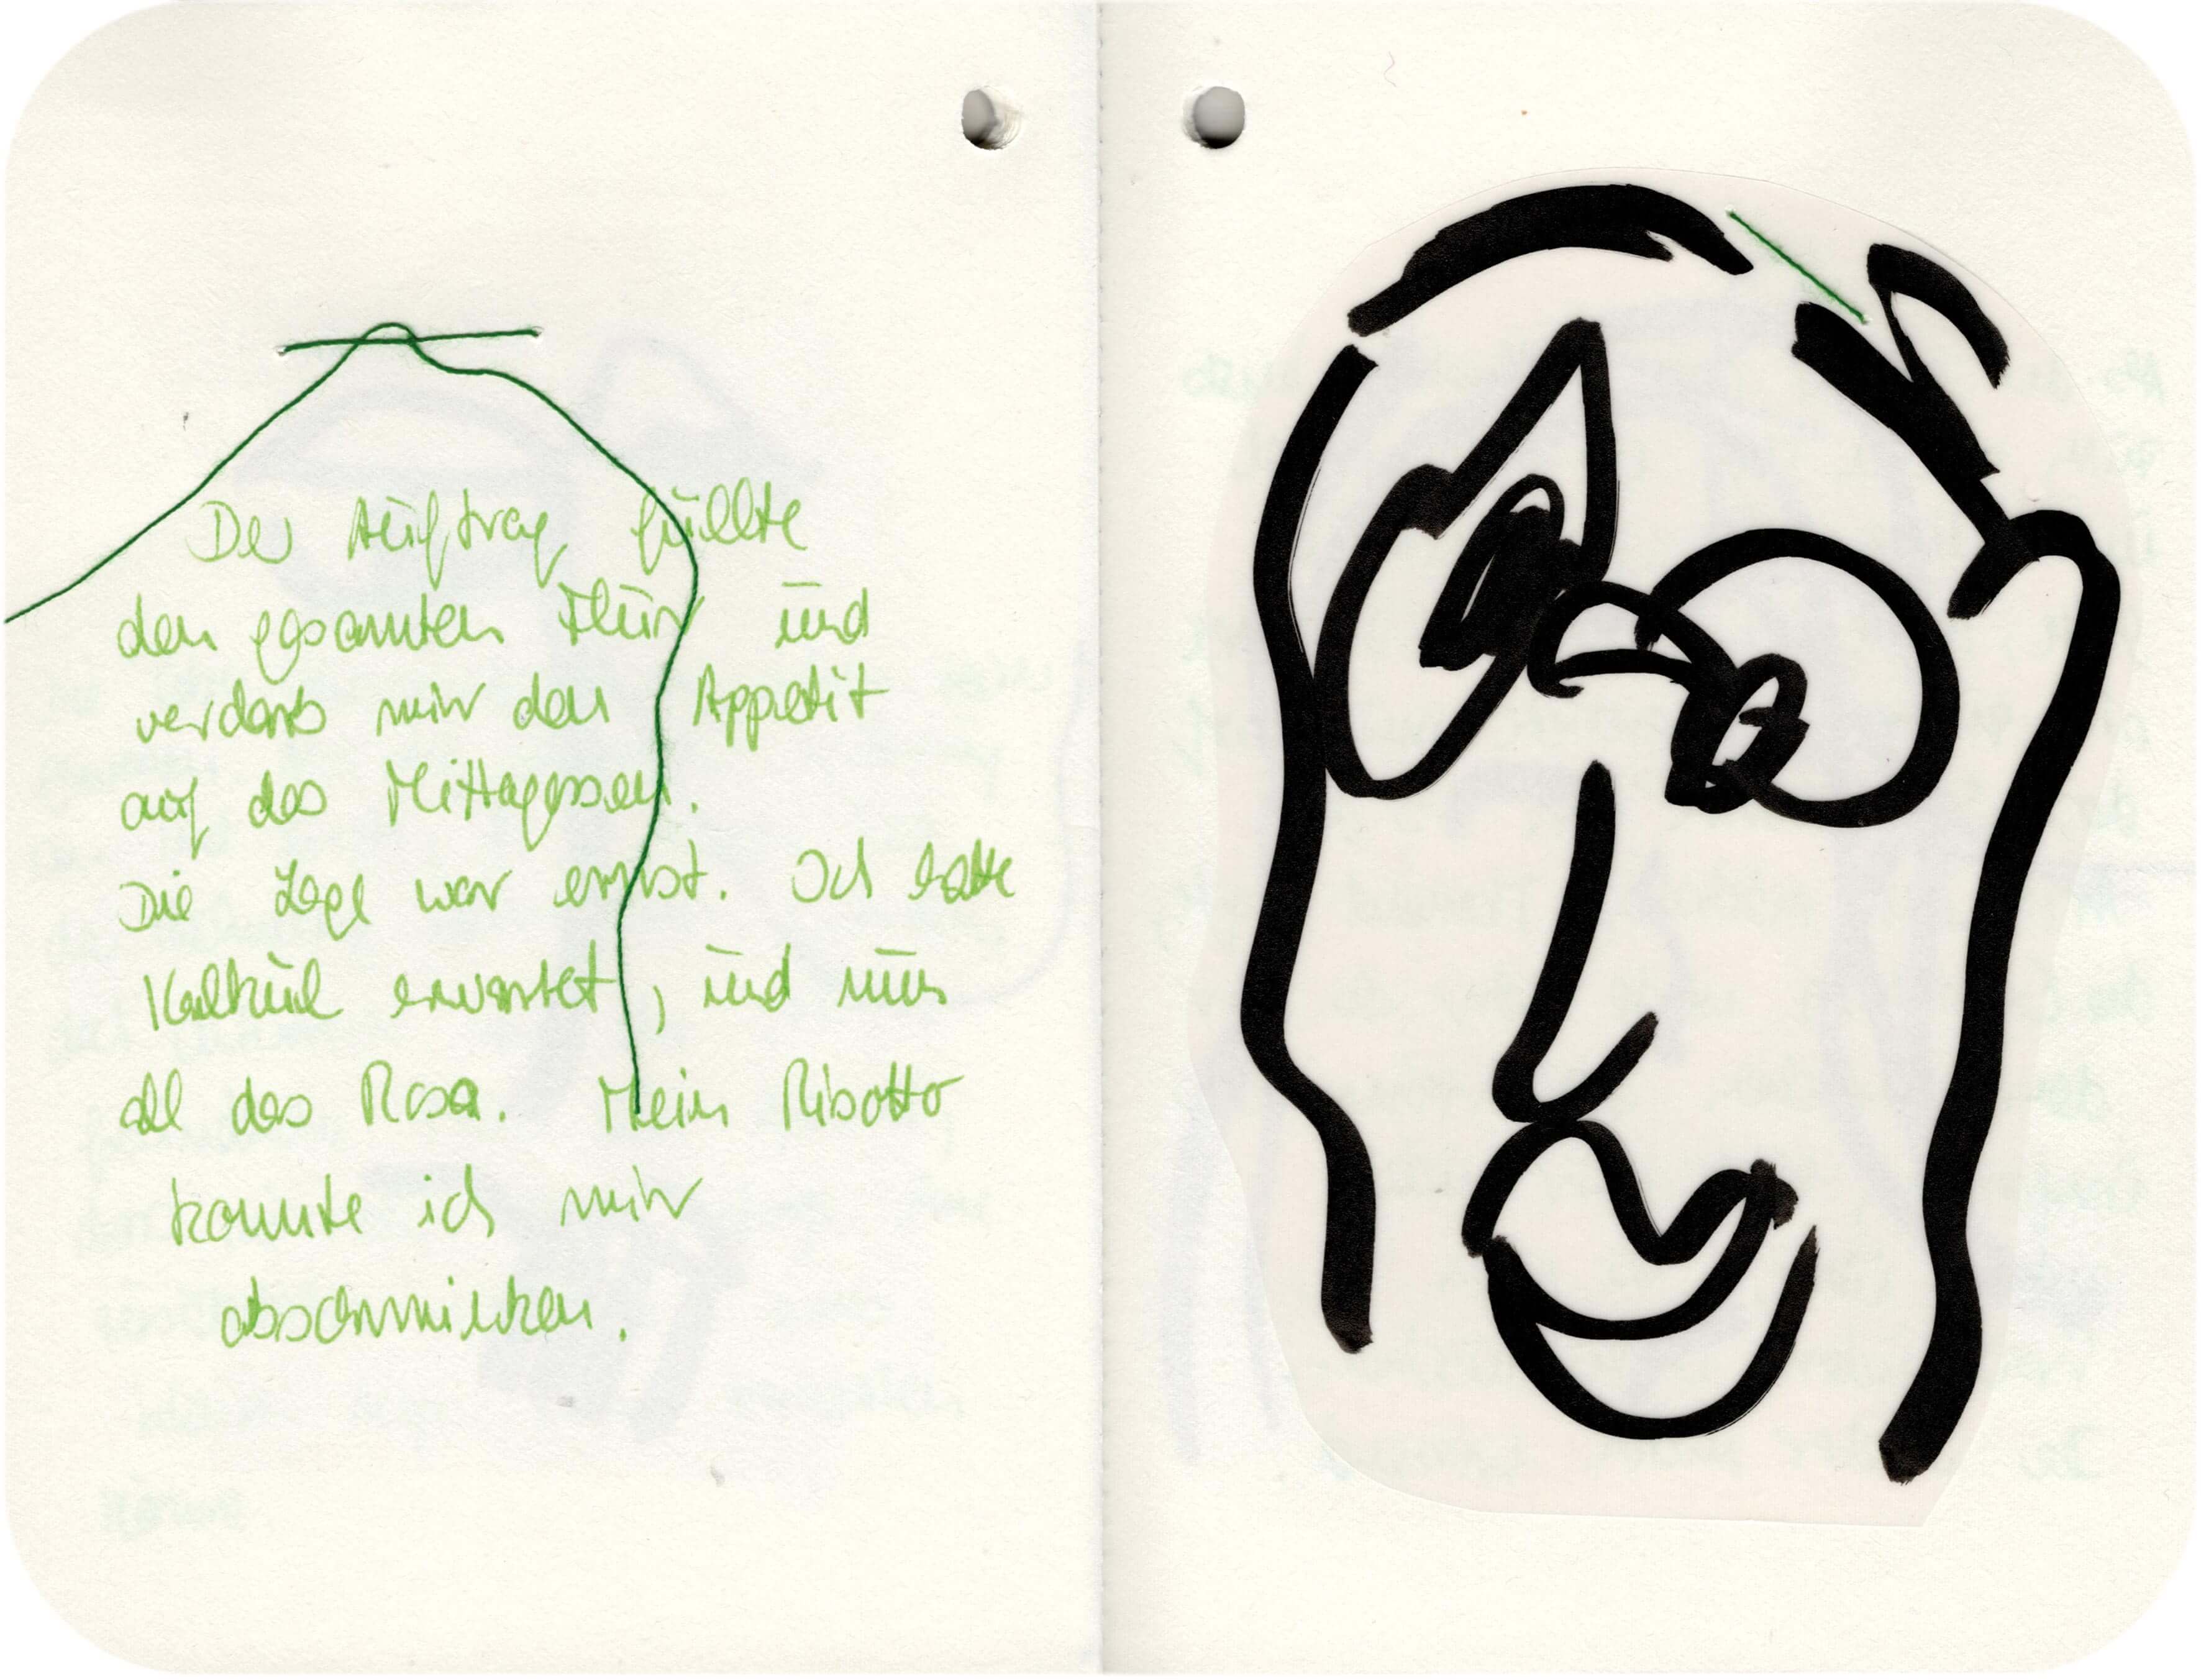 Der Auftrag füllte
den gesamten Flur und
verdarb mir den Appetit
auf das Mittagessen.
Die Lage war ernst. Ich hatte
Kalkül erwartet, und nun
all das Rosa. Mein Risotto
konnte ich mir
abschminken.